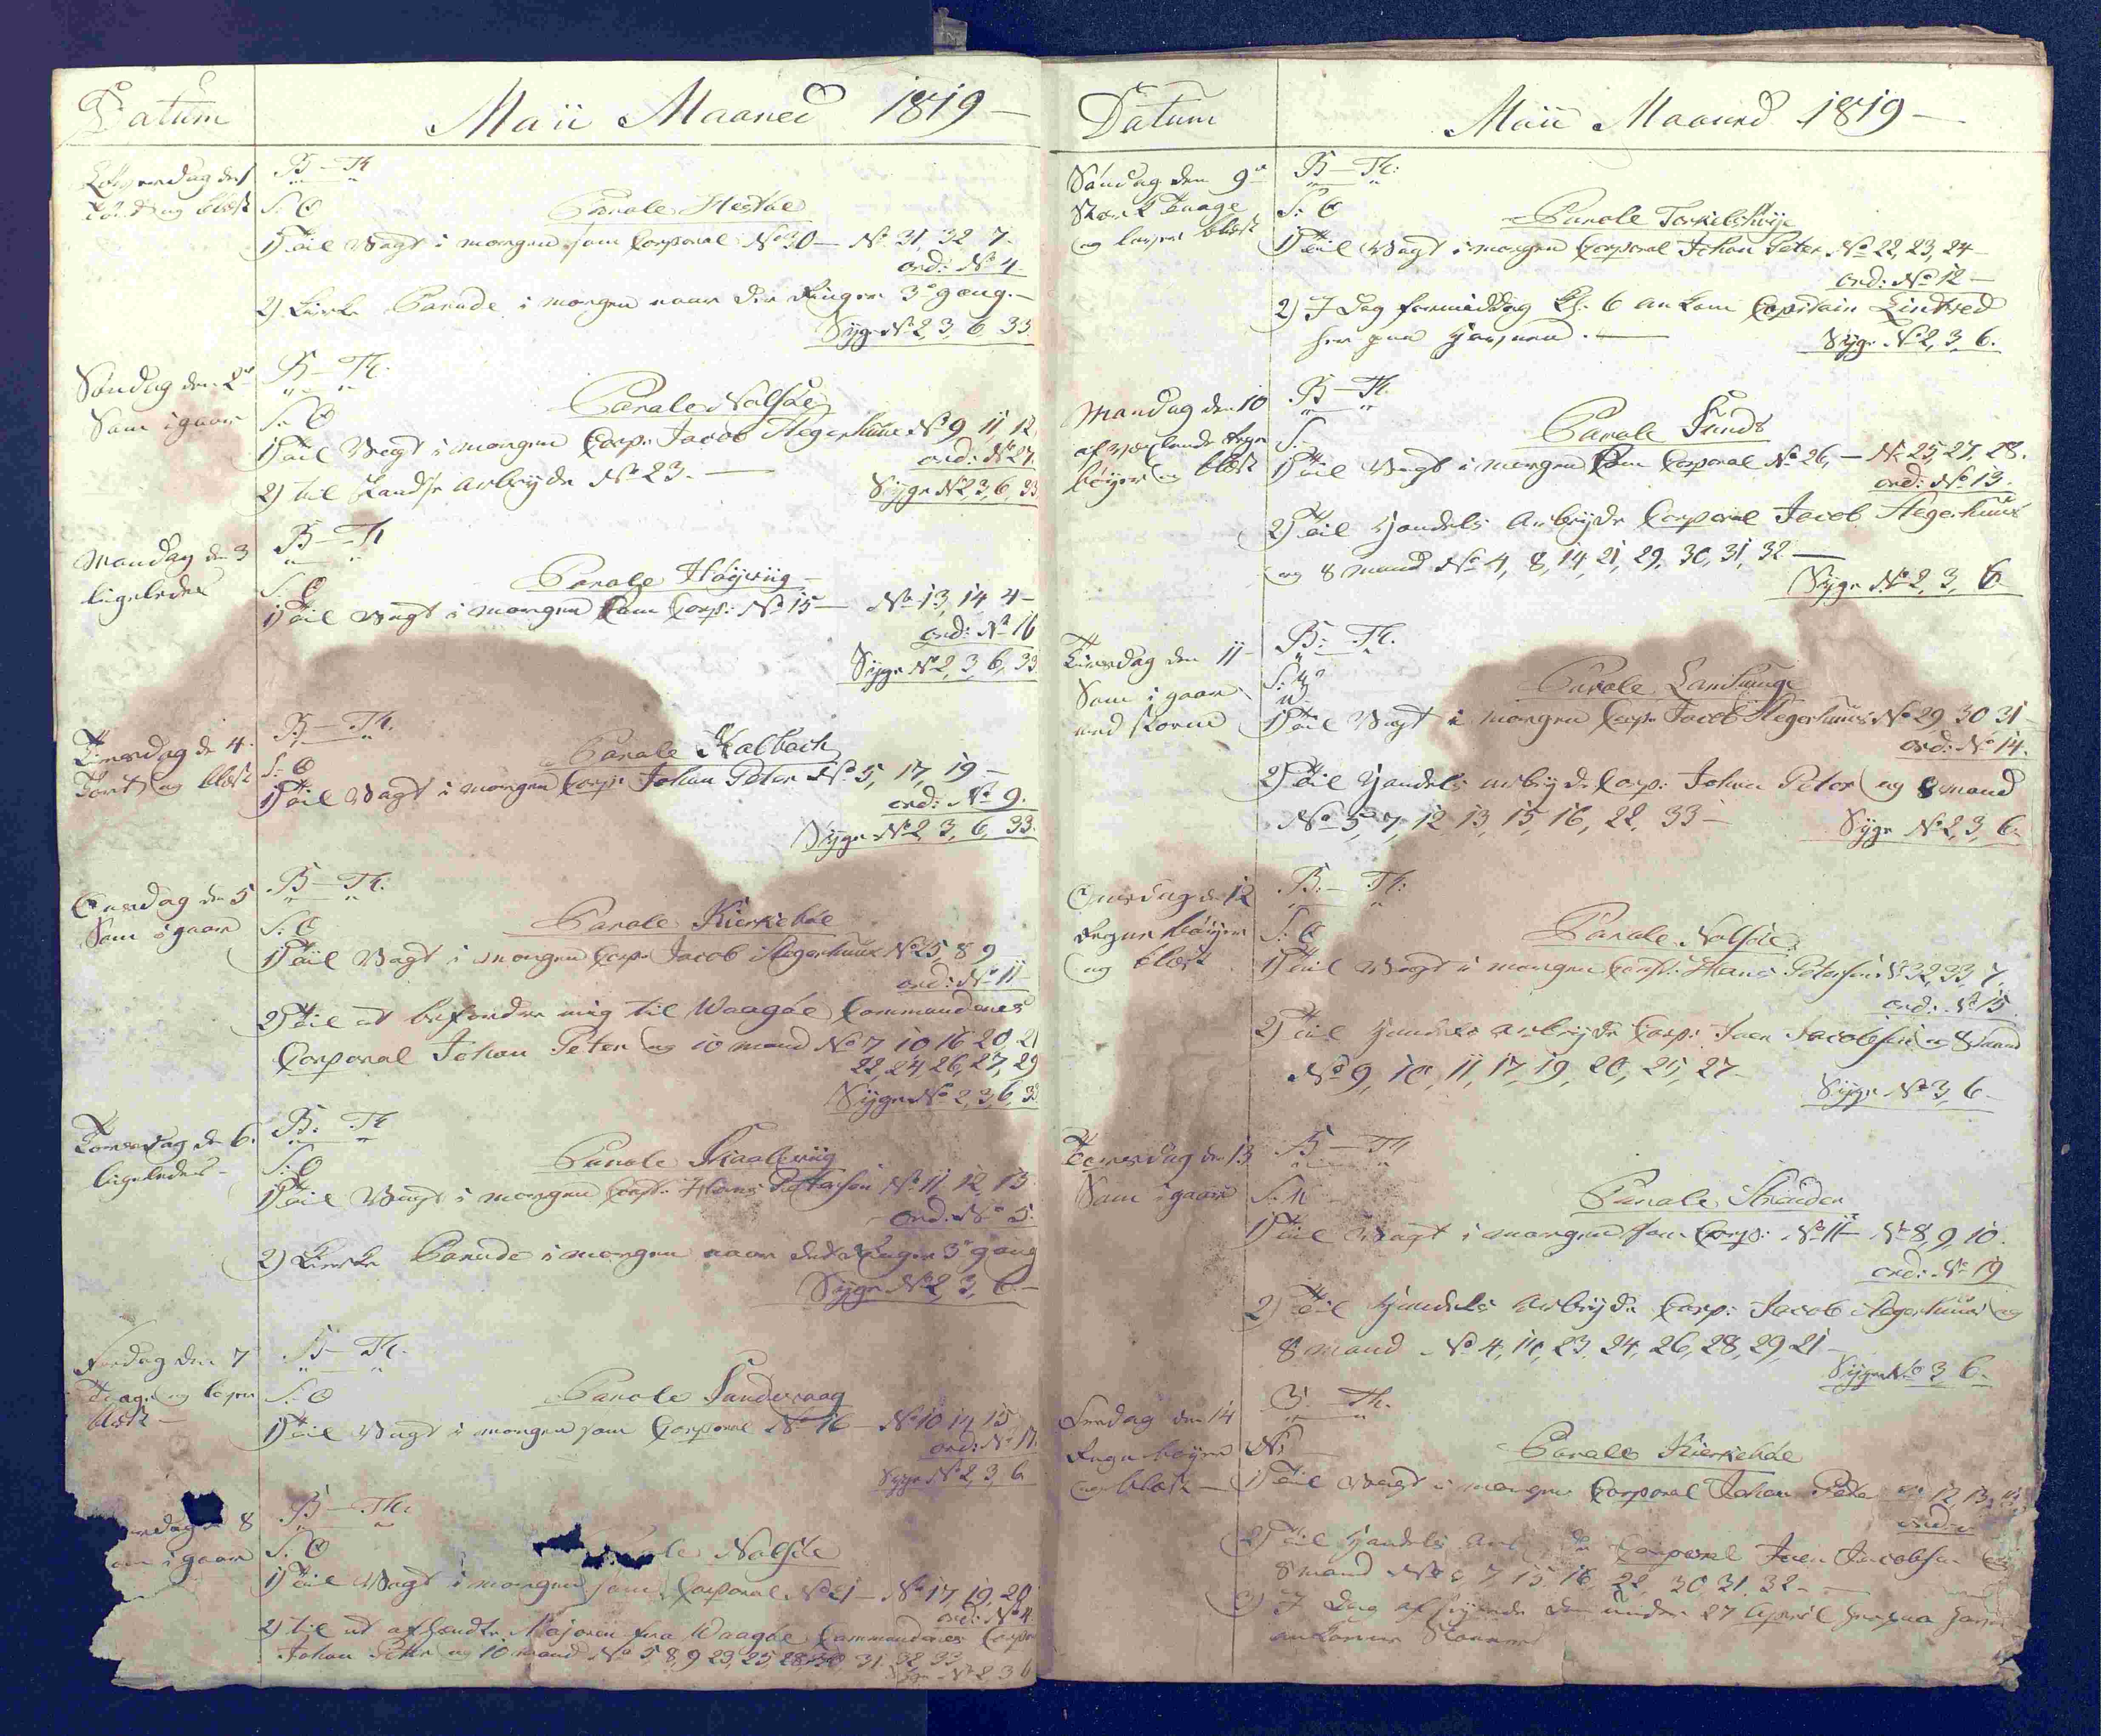 Datum
Maii Maaned 1819 —
Løverdag den 1
Tört og blæst
B — Th
S: O
Parole Hestöe
1) Til Vagt i morgen som Corporal No 30 — No 31, 32, 7.
ord: No 4.
2) Kirke Parade i morgen naar der Ringer 3de gang. —
Syge No 2, 3, 6, 33.
Søndag den 2den
Som igaar
B — Th.
S: O
Parole Nolsöe
1) Til Vagt i morgen Corp: Jacob Hegerhuus No 9, 11, 12
ord: No 27.
2) til Landse Arbeyde No 23. —
Syge No 2, 3, 6, 33
Mandag den 3
ligeledes
B — Th
S: O
Parole Höyviig —
1) Til Vagt i morgen som Corp: No 15 — No 13, 14, 4 —
ord: No 16
Syge No 2, 3, 6, 33
Tirsdag den 4.
Tört og blæst
B — Th.
S: O
Parole Kalbach
1) Til Vagt i morgen Corp: Johan Peter No 5, 17, 19 —
ord: No 9.
Syge No 2, 3, 6, 33.
Onsdag den 5
Som igaar
B — Th.
S: O
Parole Kierkeböe
1) Til Vagt i morgen Corp: Jacob Hegerhuus No 25, 8, 9
ord: No 11 —
2) Til at befordre mig til Waagöe Commanderes
Corporal Johan Peter og 10 mand No 7, 10, 16, 20, 21
22, 24, 26, 27, 29
Syge No 2, 3, 6, 33
Torsdag den 6.
ligeledes —
B: Th
S: O
Parole Skaaleviig
1) Til Vagt i morgen Corp: Hans Petersen No 11, 12, 13
ord: No 5.
2) Kirke Parade i morgen naar det Ringer 3de gang
Syge No 2, 3, 6 —
Fredag den 7
Taage og løyer
blæst —
B — Th.
S: O
Parole Sandevaag
1) Til Vagt i morgen som Corporal No 16 — No 10, 14, 15
ord: No 17.
Syge No 2, 3, 6
8
igaar
B — Th:
S. O
Nolsöe
1) Til Vagt i morgen som Corporal No 21 — No 17, 19, 20
ord: No 4
2) til at afhændte Majoren fra Waagöe Commanderes Corpo
Johan Peter og 10 mand No 5, 8, 9, 23, 25, 28, 30, 31, 32, 33
Syge No 2, 3, 6
Datum
Maii Maaned 1819 —
Søndag den 9de
Stærk Taage
og løyer blæst
B — Th:
S: O
Parole Torkelshuje
1) Til Vagt i morgen Corporal Johan Peter No 22, 23, 24 —
ord: No 12 —
2) I Dag formiddag Kl. 6 ankom Capitain Lindved
her paa Havnen. —
Syge No 2, 3, 6.
Mandag den 10
afvexlende Regn
bøyer og blæst
B — Th.
S:
Parole Sund
1) Til Vagt i morgen som Corporal No 26, — No 25, 27, 28.
ord: No 13.
2) Til Handels Arbeyde Corporal Jacob Hegerhuus
og 8 mand No 4, 8, 14, 21, 29, 30, 31, 32 —
Syge No 2, 3, 6
Tirsdag den 11 —
Som igaar
med storm
B: Th.
Parole Lamhauge
1) Til Vagt i morgen Corp: Jacob Hegerhuus No 29, 30, 31 —
ord: No 14.
2) Til Handels arbeyde Corp: Johan Peter og 8 mand
No 5, 7, 12, 13, 15, 16, 22, 33 —
Syge No 2, 3, 6.
Onsdag den 12
Regne bøyer
og blæst
B: — Th:
S: O
Parole Nolsöe
1) Til Vagt i morgen Corp: Hans Petersen No 32, 33, 7.
ord: No 15
2) Til Handels arbeyde Corp: Joen Jacobsen og 8 mand
No 9, 10, 11, 17, 19, 20, 25, 27
Syge No 3, 6 —
Torsdag den 13
Som igaar
B — Th
Parole Strænder
1) Til Vagt i morgen som Corp: No 11 — No 8, 9, 10.
ord: No 19
2) Til Handels Arbeyde Corp: Jacob Hegerhuus og
8 mand No 4, 14, 23, 24, 26, 28, 29, 21 —
Syge No 3, 6.
Fredag den 14
Regn bøyer
og blæst —
B. Th.
Parole Kierkeböe
1) Til Vagt i morgen Corporal Johan Peter No 12, 13,
ord:
2) Til Handels Corporal Joen Jacobsen og
8 mand No 7, 15, 16, 22, 30, 31, 32 —
3) I Dag den under 27 April her paa Havnen
ankomne